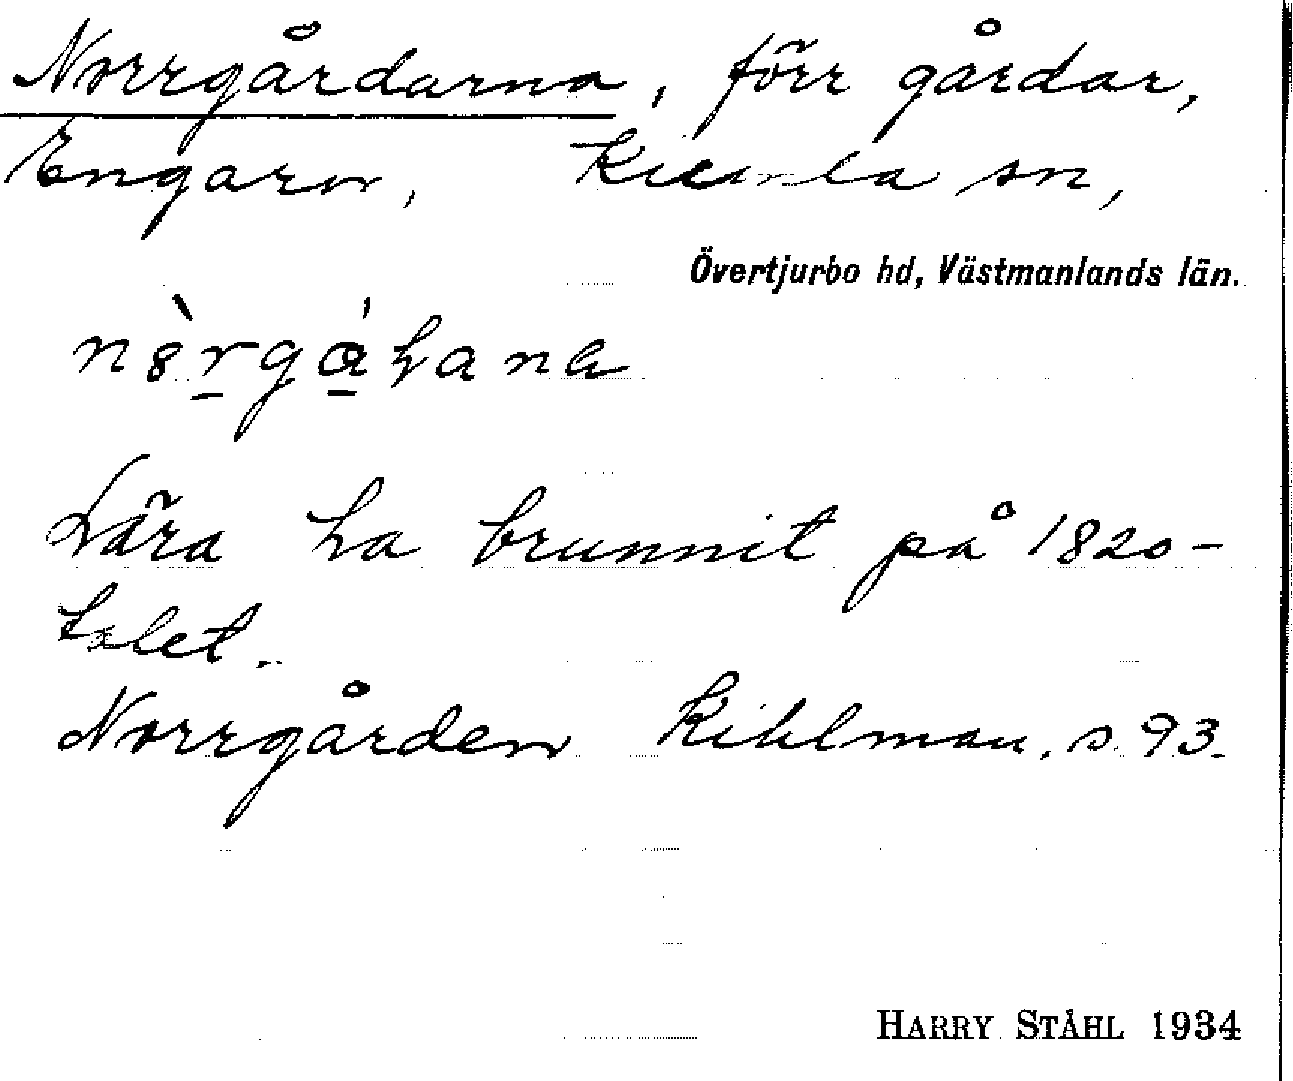 Norrgårdarna, förr gårdar,
Engaren, Kumla sn,
Övertjurbo hd, Västmanlands län.
Lära ha brunnit på 1820-
talet.
Norrgården Kihlman, s. 93.
HARRY STÅHL 1934